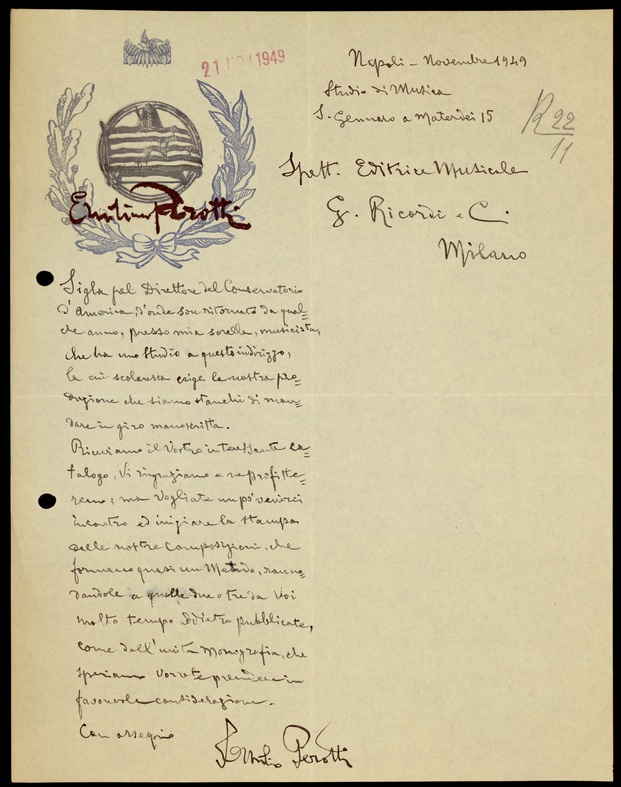 21 NOV 1949
Napoli - Novembre 1949
Studio di Musica
S. Gennaro a Materdei 15
R 22
11
Spett. Editrice Musicale
G. Ricordi e C.
Milano
Emilio Perotti
Sigla pel Direttore del Conservatorio
d'America, d'onde son ritornato da qual=
che anno, presso mia sorella, musicista,
che ha uno Studio a questo indirizzo,
la cui scolaresca esige la nostra pro=
duzione che siamo stanchi di man=
dare in giro manoscritta.
Riceviamo il Vostro interessante ca=
talogo, Vi ringraziamo e ne profitte=
remo; ma Vogliate un pò venirci
incontro ed iniziare la stampa
delle nostre Composizioni, che
formano quasi un Metodo, ranno=
dandole a quelle due o tre da Voi
molto tempo addietro pubblicate,
come dall'unita Monografia, che
speriamo Vorrete prendere in
favorevole considerazione.
Con ossequio
Emilio Perotti